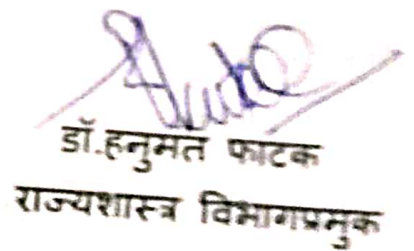 डॉ.हनुमंत फाटक
राज्यशास्त्र विभागप्रमुक